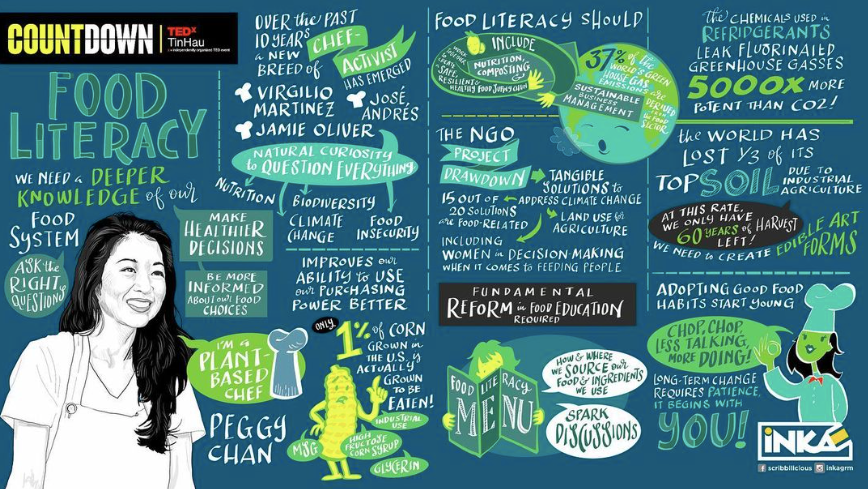 COUNTDOWN
TEDx
TinHau
x = independently organized TED event
FOOD
LITERACY
WE NEED a DEEPER
KNOWLEDGE of our
FOOD
SYSTEM
ASK the
RIGHT
QUESTIONS
MAKE
HEALTHIER
DECISIONS
BE MORE
INFORMED
ABOUT our FOOD
CHOICES
I'M a
PLANT-
BASED
CHEF
PEGGY
CHAN
OVER the PAST
10 YEARS
a NEW
BREED of
CHEF-
ACTIVIST
HAS EMERGED
VIRGILIO
MARTINEZ
JOSÉ
ANDRÉS
JAMIE OLIVER
NATURAL CURIOSITY
to QUESTION EVERYTHING
NUTRITION
BIODIVERSITY
CLIMATE
CHANGE
FOOD
INSECURITY
IMPROVES our
ABILITY to USE
our PURCHASING
POWER BETTER
ONLY
1% of CORN
GROWN in
THE U.S. is
ACTUALLY
GROWN
TO BE
EATEN!
INDUSTRIAL
USE
MSG
HIGH
FRUCTOSE
CORN SYRUP
GLYCERIN
FOOD LITERACY SHOULD
INCLUDE
NUTRITION,
COMPOSTING
SAFE,
RESILIENT
HEALTHY FOOD SYSTEM
SUSTAINABLE
BUSINESS
MANAGEMENT
37% of the
WORLD'S GREEN
HOUSE GAS
EMISSIONS are
DERIVED
from the
FOOD
SECTOR
THE NGO
PROJECT
DRAWDOWN
TANGIBLE
SOLUTIONS to
ADDRESS CLIMATE CHANGE
15 OUT OF
20 SOLUTIONS
are FOOD-RELATED
LAND USE &
AGRICULTURE
INCLUDING
WOMEN in DECISION-MAKING
WHEN IT COMES to FEEDING PEOPLE
FUNDAMENTAL
REFORM in FOOD EDUCATION
REQUIRED
FOOD LITERACY
MENU
HOW & WHERE
WE SOURCE our
FOOD & INGREDIENTS
WE USE
SPARK
DISCUSSIONS
the CHEMICALS USED in
REFRIDGERANTS
LEAK FLUORINAIED
GREENHOUSE GASSES
5000x MORE
POTENT THAN CO2!
the WORLD HAS
LOST 1/3 of ITS
TOPSOIL
DUE TO
INDUSTRIAL
AGRICULTURE
AT THIS RATE,
WE ONLY HAVE
60 YEARS of HARVEST
LEFT!
WE NEED to CREATE EDIBLE ART
FORMS
ADOPTING GOOD FOOD
HABITS START YOUNG
CHOP, CHOP,
LESS TALKING,
MORE DOING!
LONG-TERM CHANGE
REQUIRES PATIENCE,
IT BEGINS WITH
YOU!
INKA
scribblicious
inkagrm